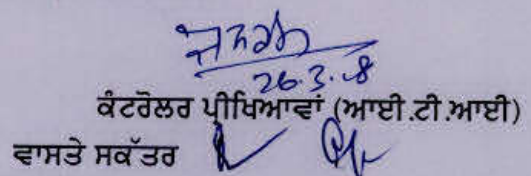 26.3.18
ਕੰਟਰੋਲਰ ਪ੍ਰੀਖਿਆਵਾਂ (ਆਈ.ਟੀ.ਆਈ)
ਵਾਸਤੇ ਸਕੱਤਰ